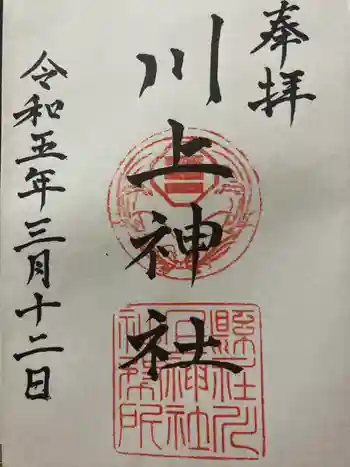 奉拝
川上神社
令和五年三月十二日
縣社川
上神社
社務所